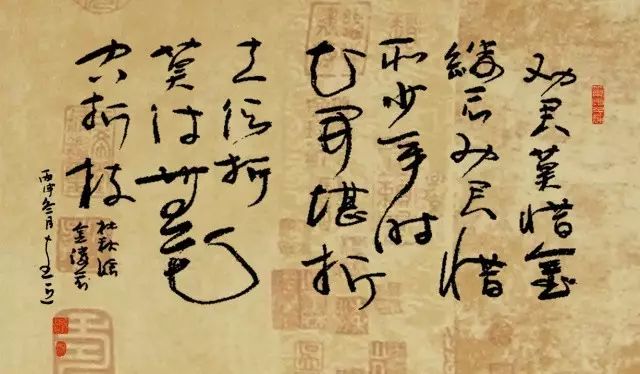 劝君莫惜金
缕衣劝君惜
取少年时
花开堪折
直须折
莫待無花
空折枝
杜秋娘
金缕衣
丙申冬月